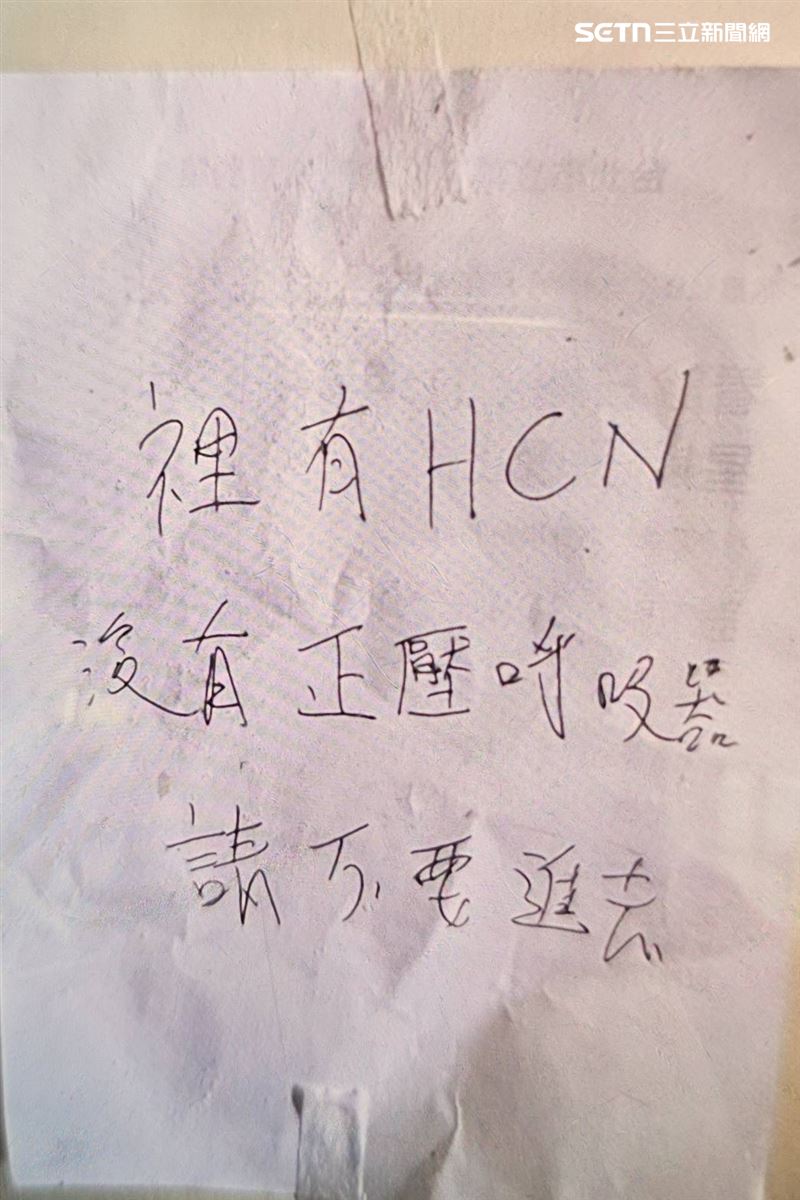 SETN三立新聞網
裡有HCN
沒有正壓呼吸器
請不要進去